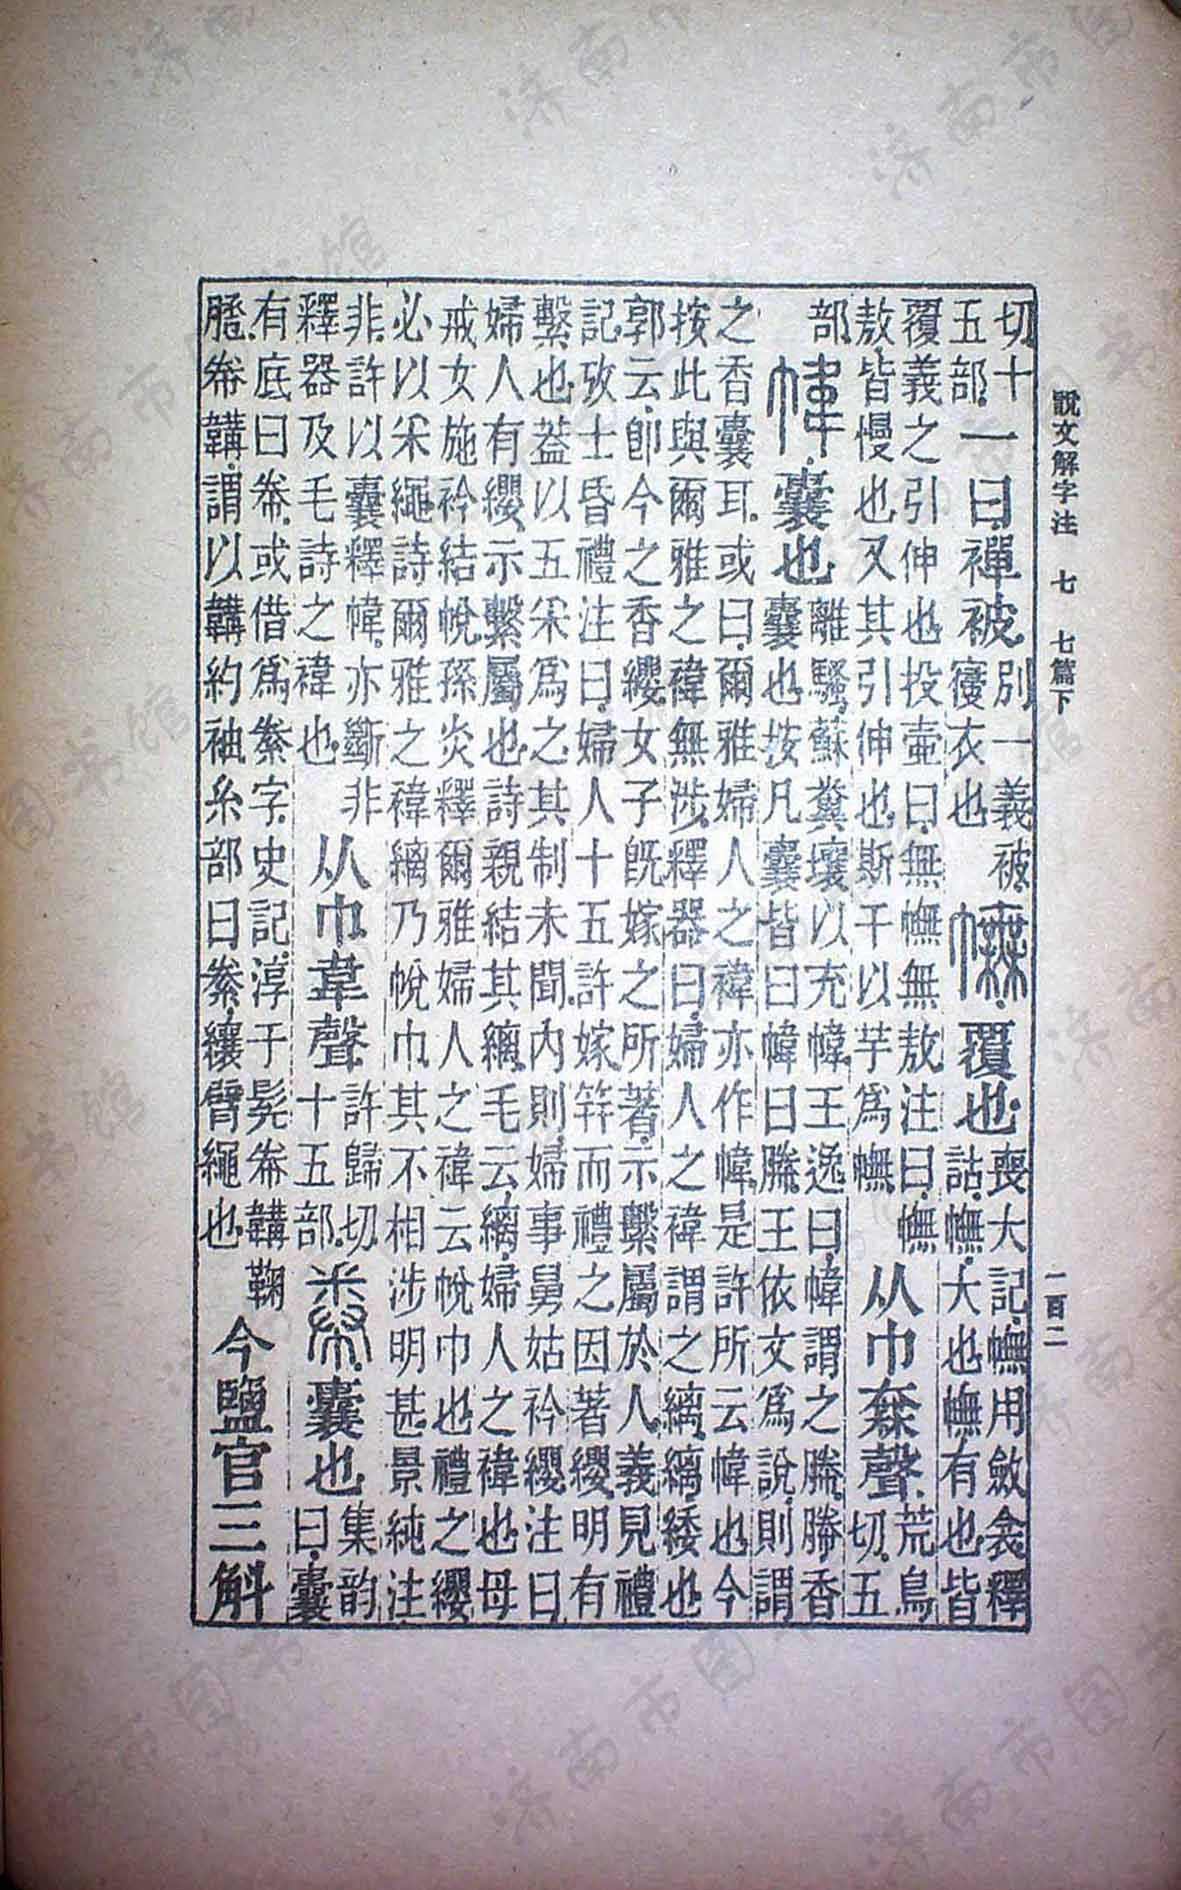 說文解字注 七 七篇下 一百二
切十
五部
一曰襌被
別一義被
寑衣也
幠
覆也
喪大記幠用斂衾釋
詁幠大也幠有也皆
覆義之引伸也投壷曰無幠無敖注曰幠
敖皆慢也又其引伸也斯干以芋爲幠
从巾橆聲
荒烏
切五
部
幃
囊也
離騷蘇糞壤以充幃王逸曰幃謂之縢縢香
囊也按凡囊皆曰幃曰縢王依文爲說則謂
之香囊耳或曰爾雅婦人之褘亦作幃是許所云幃也今
按此與爾雅之褘無涉釋器曰婦人之褘謂之縭縭緌也
郭云卽今之香纓女子旣嫁之所著示繫屬於人義見禮
記攷士昏禮注曰婦人十五許嫁笄而禮之因著纓明有
繫也葢以五采爲之其制未聞內則婦事舅姑衿纓注曰
婦人有纓示繫屬也詩親結其縭毛云縭婦人之褘也母
戒女施衿結帨孫炎釋爾雅婦人之褘云帨巾也禮之纓
必以采繩詩爾雅之褘縭乃帨巾其不相涉明甚景純注
非許以囊釋幃亦斷非
釋器及毛詩之褘也
从巾韋聲
許歸切
十五部
帣
囊也
集韵
曰囊
有底曰帣或借爲絭字史記淳于髡帣韝鞠
帣韝謂以韝約袖糸部曰絭纕臂繩也
今鹽官三斛